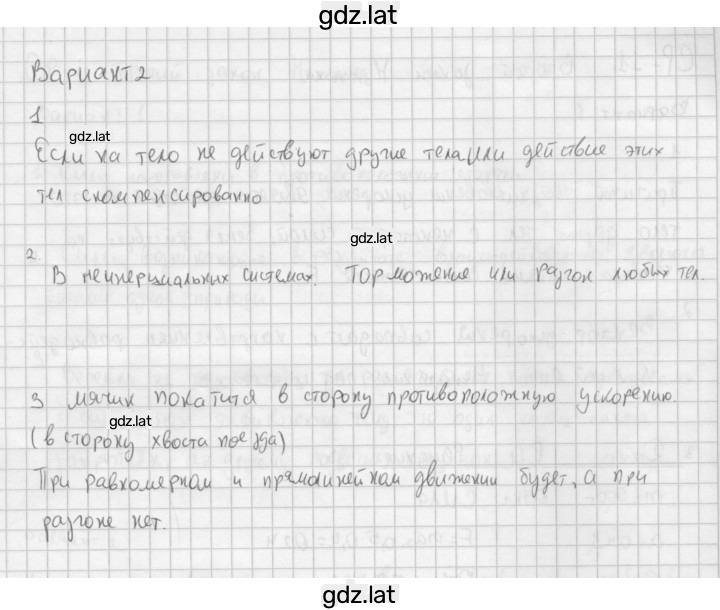 gdz.lat
Вариант 2
1
gdz.lat
Если на тело не действуют другие тела или действие этих
тел скомпенсированно
gdz.lat
2.
В неинерциальных системах. Торможение или разгон любых тел.
3 мячик покатится в сторону противоположную ускорению.
gdz.lat
(в сторону хвоста поезда)
При равномерном и прямолинейном движении будет, а при
разгоне нет.
gdz.lat